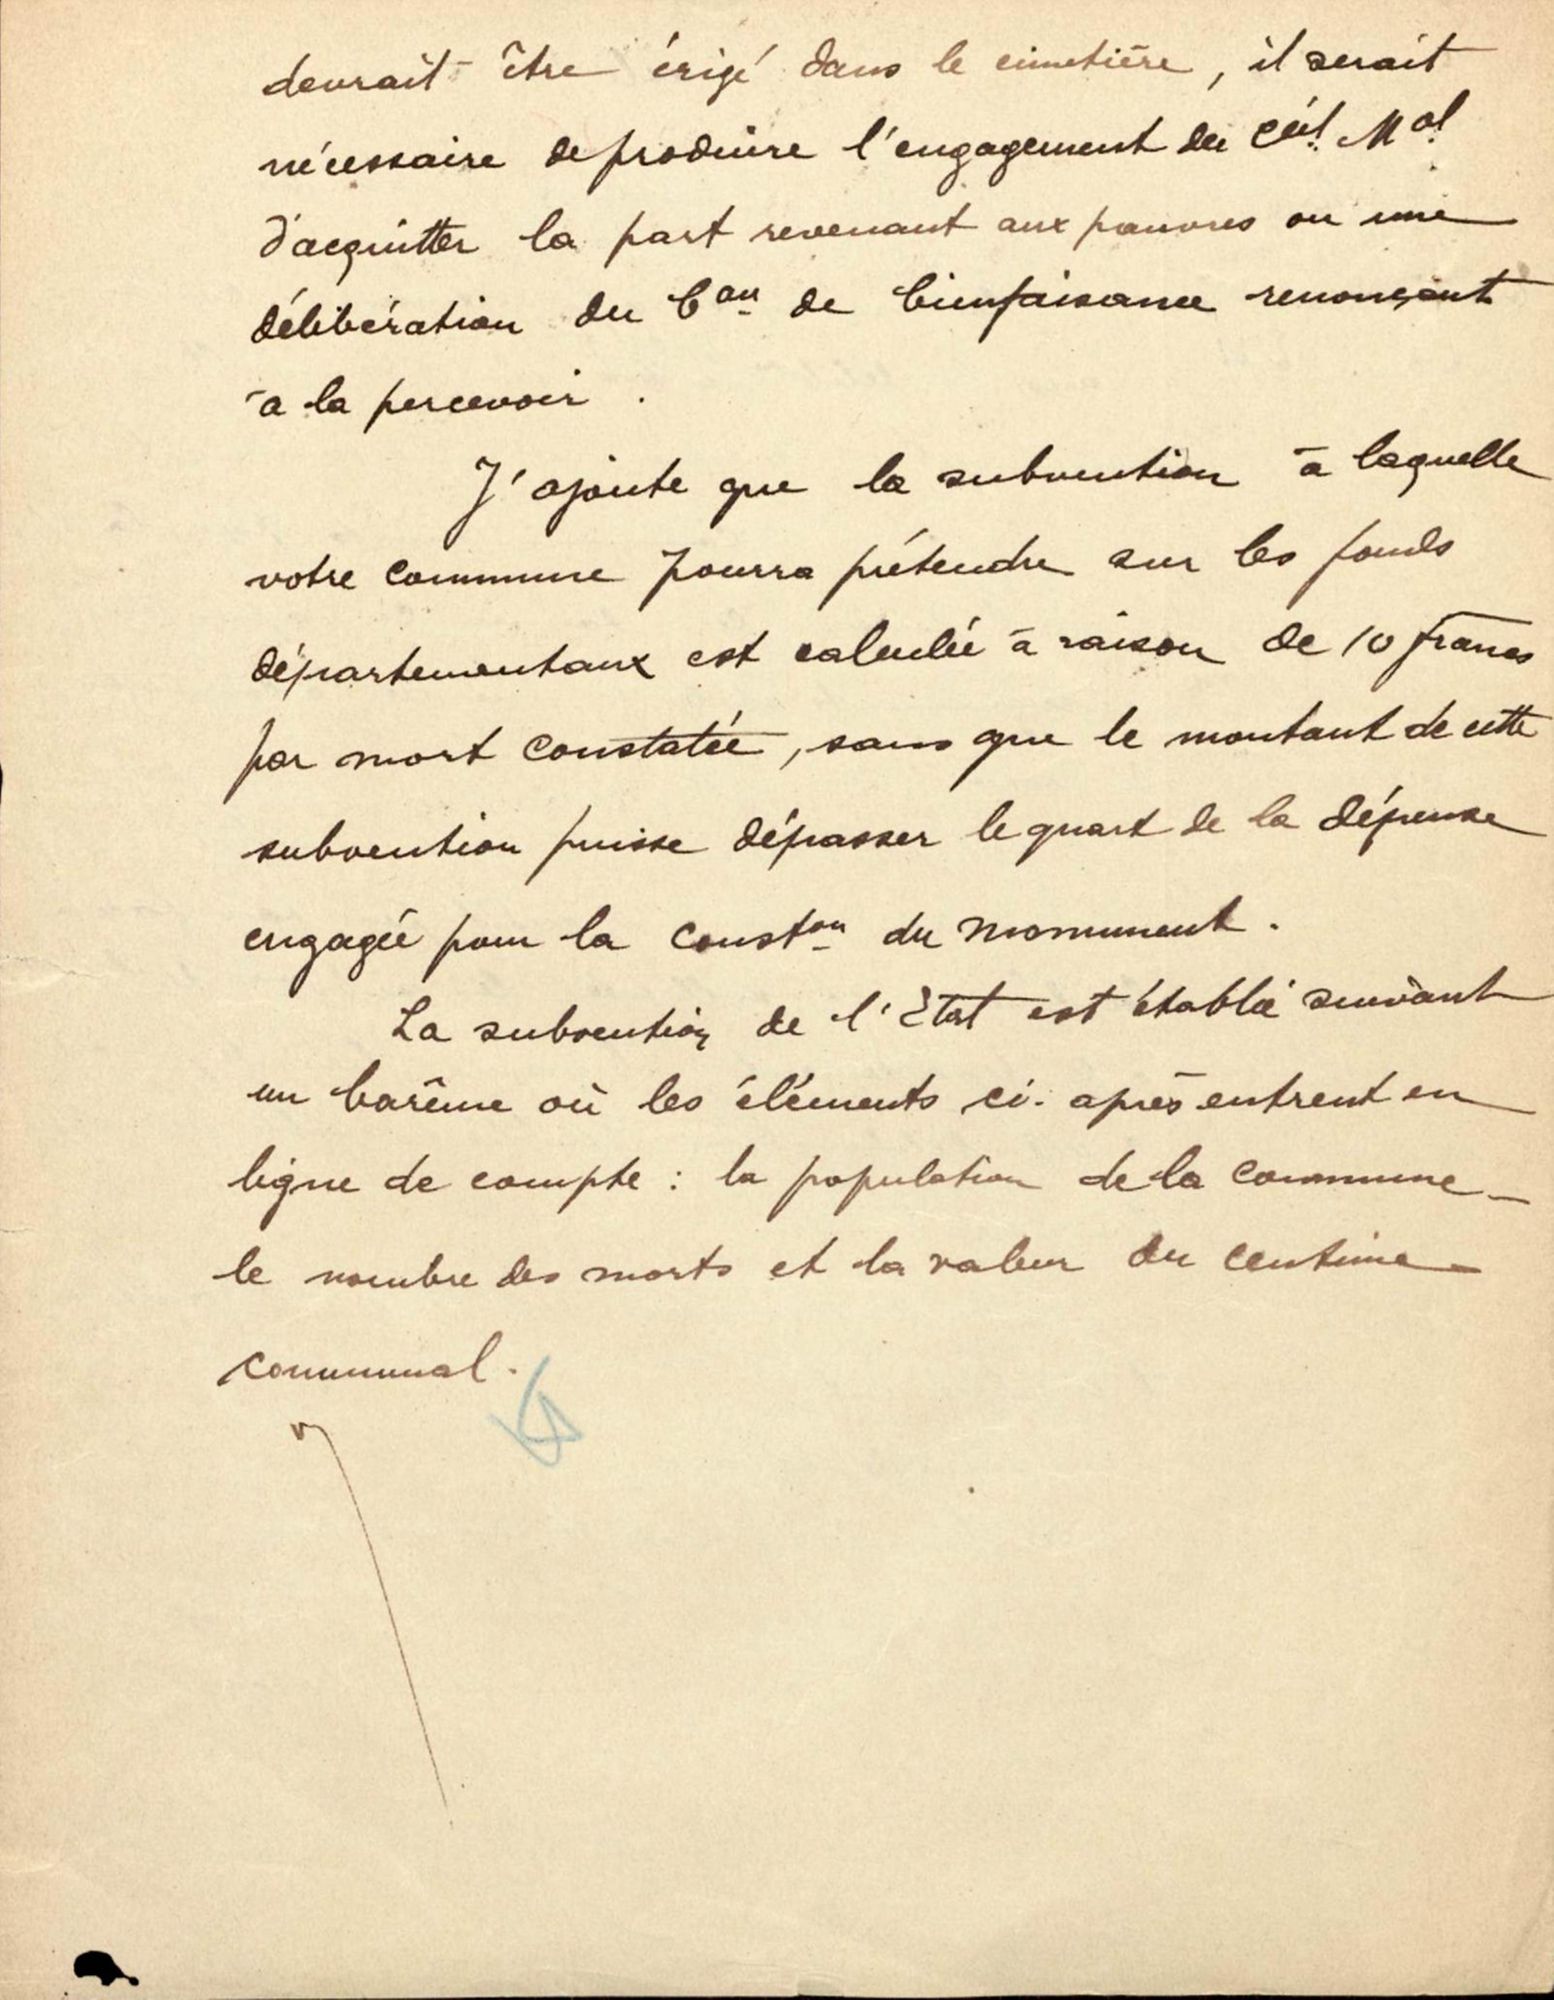 devrait être érigé dans le cimetière, il serait
nécessaire de produire l'engagement du Cel. Mal.
d'acquitter la part revenant aux pauvres ou une
délibération du Bau de bienfaisance renonçant
à la percevoir.
J'ajoute que la subvention à laquelle
votre commune pourra prétendre sur les fonds
départementaux est calculée à raison de 10 francs
par mort constatée, sans que le montant de cette
subvention puisse dépasser le quart de la dépense
engagée pour la conston du monument.
La subvention de l'Etat est établie suivant
un barême où les éléments ci-après entrent en
ligne de compte : la population de la commune -
le nombre des morts et la valeur du centime
communal.